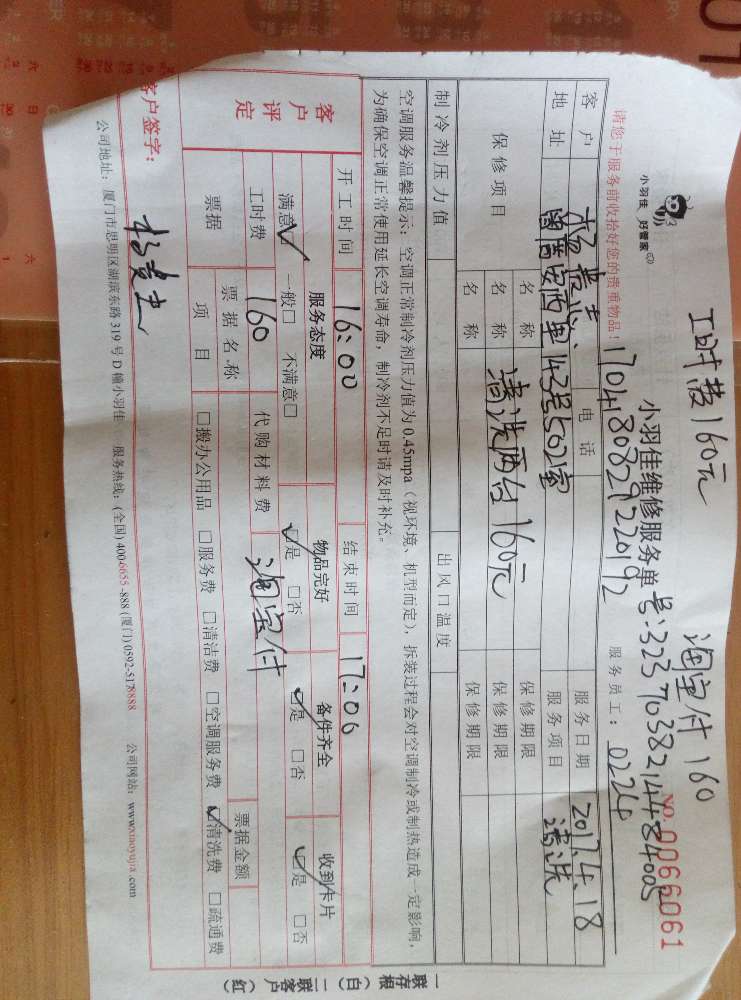 工时费160元
淘宝付 160
小羽佳 好管家
小羽佳维修服务单
号:3237038214484005
NO. 0066061
请您于服务前收拾好您的贵重物品!
1704180829220192
服务员工: 0224
客户
电话
服务日期 2017.4.18
地址
安西里143号502室
服务项目 清洗
保修项目
名称 清洗两台 160元 保修期限
名称 保修期限
名称 保修期限
制冷剂压力值
出风口温度
空调服务温馨提示: 空调正常制冷剂压力值为0.45mpa(视环境、机型而定), 拆装过程会对空调制冷或制热造成一定影响,
为确保空调正常使用延长空调寿命, 制冷剂不足时请及时补充。
开工时间 16:00 结束时间 17:06
客户评定
服务态度 物品完好 备件齐全 收到卡片
满意☑ 一般□ 不满意□ ☑是 □否 ☑是 □否 ☑是 □否
工时费 160 代购材料费 淘宝付
票据 票据名称 票据金额
项目 □搬办公用品 □服务费 □清洁费 □空调服务费 ☑清洗费 □疏通费
客户签字:
公司地址: 厦门市思明区湖滨东路319号D幢小羽佳 服务热线: (全国) 400-6655-888 (厦门) 0592-5178888 公司网站: www.xiaoyujia.com
一联存根(白) 二联客户(红)